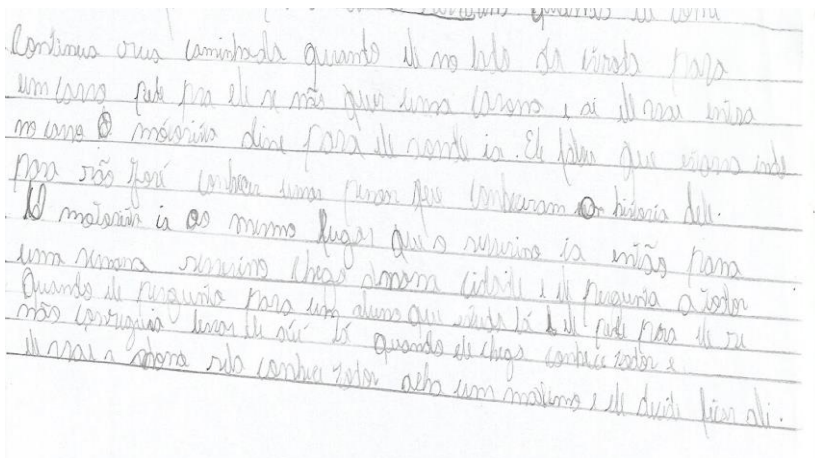 quando ele com
Continua sua caminhada quando ele no lado da estrada para
um carro pede pra ele se não quer uma carona e ai ele vai entra
no carro O motorista dise para ele aonte ia. Ele falou que estava indo
para são José conhecer uma pesoa que conheceram a historia dele.
O motorista ia ao mesmo lugar que o severino ia então para
uma semana severino chega a nova cidade e ele pergunta a todos
Quando ele pergunta para um aluno que estuda lá ele pede para ele se
não conseguia levar ele até lá quando ele chega conhece todos e
ele vai e adora conhecer todos acha um maximo e ele decide ficar ali.